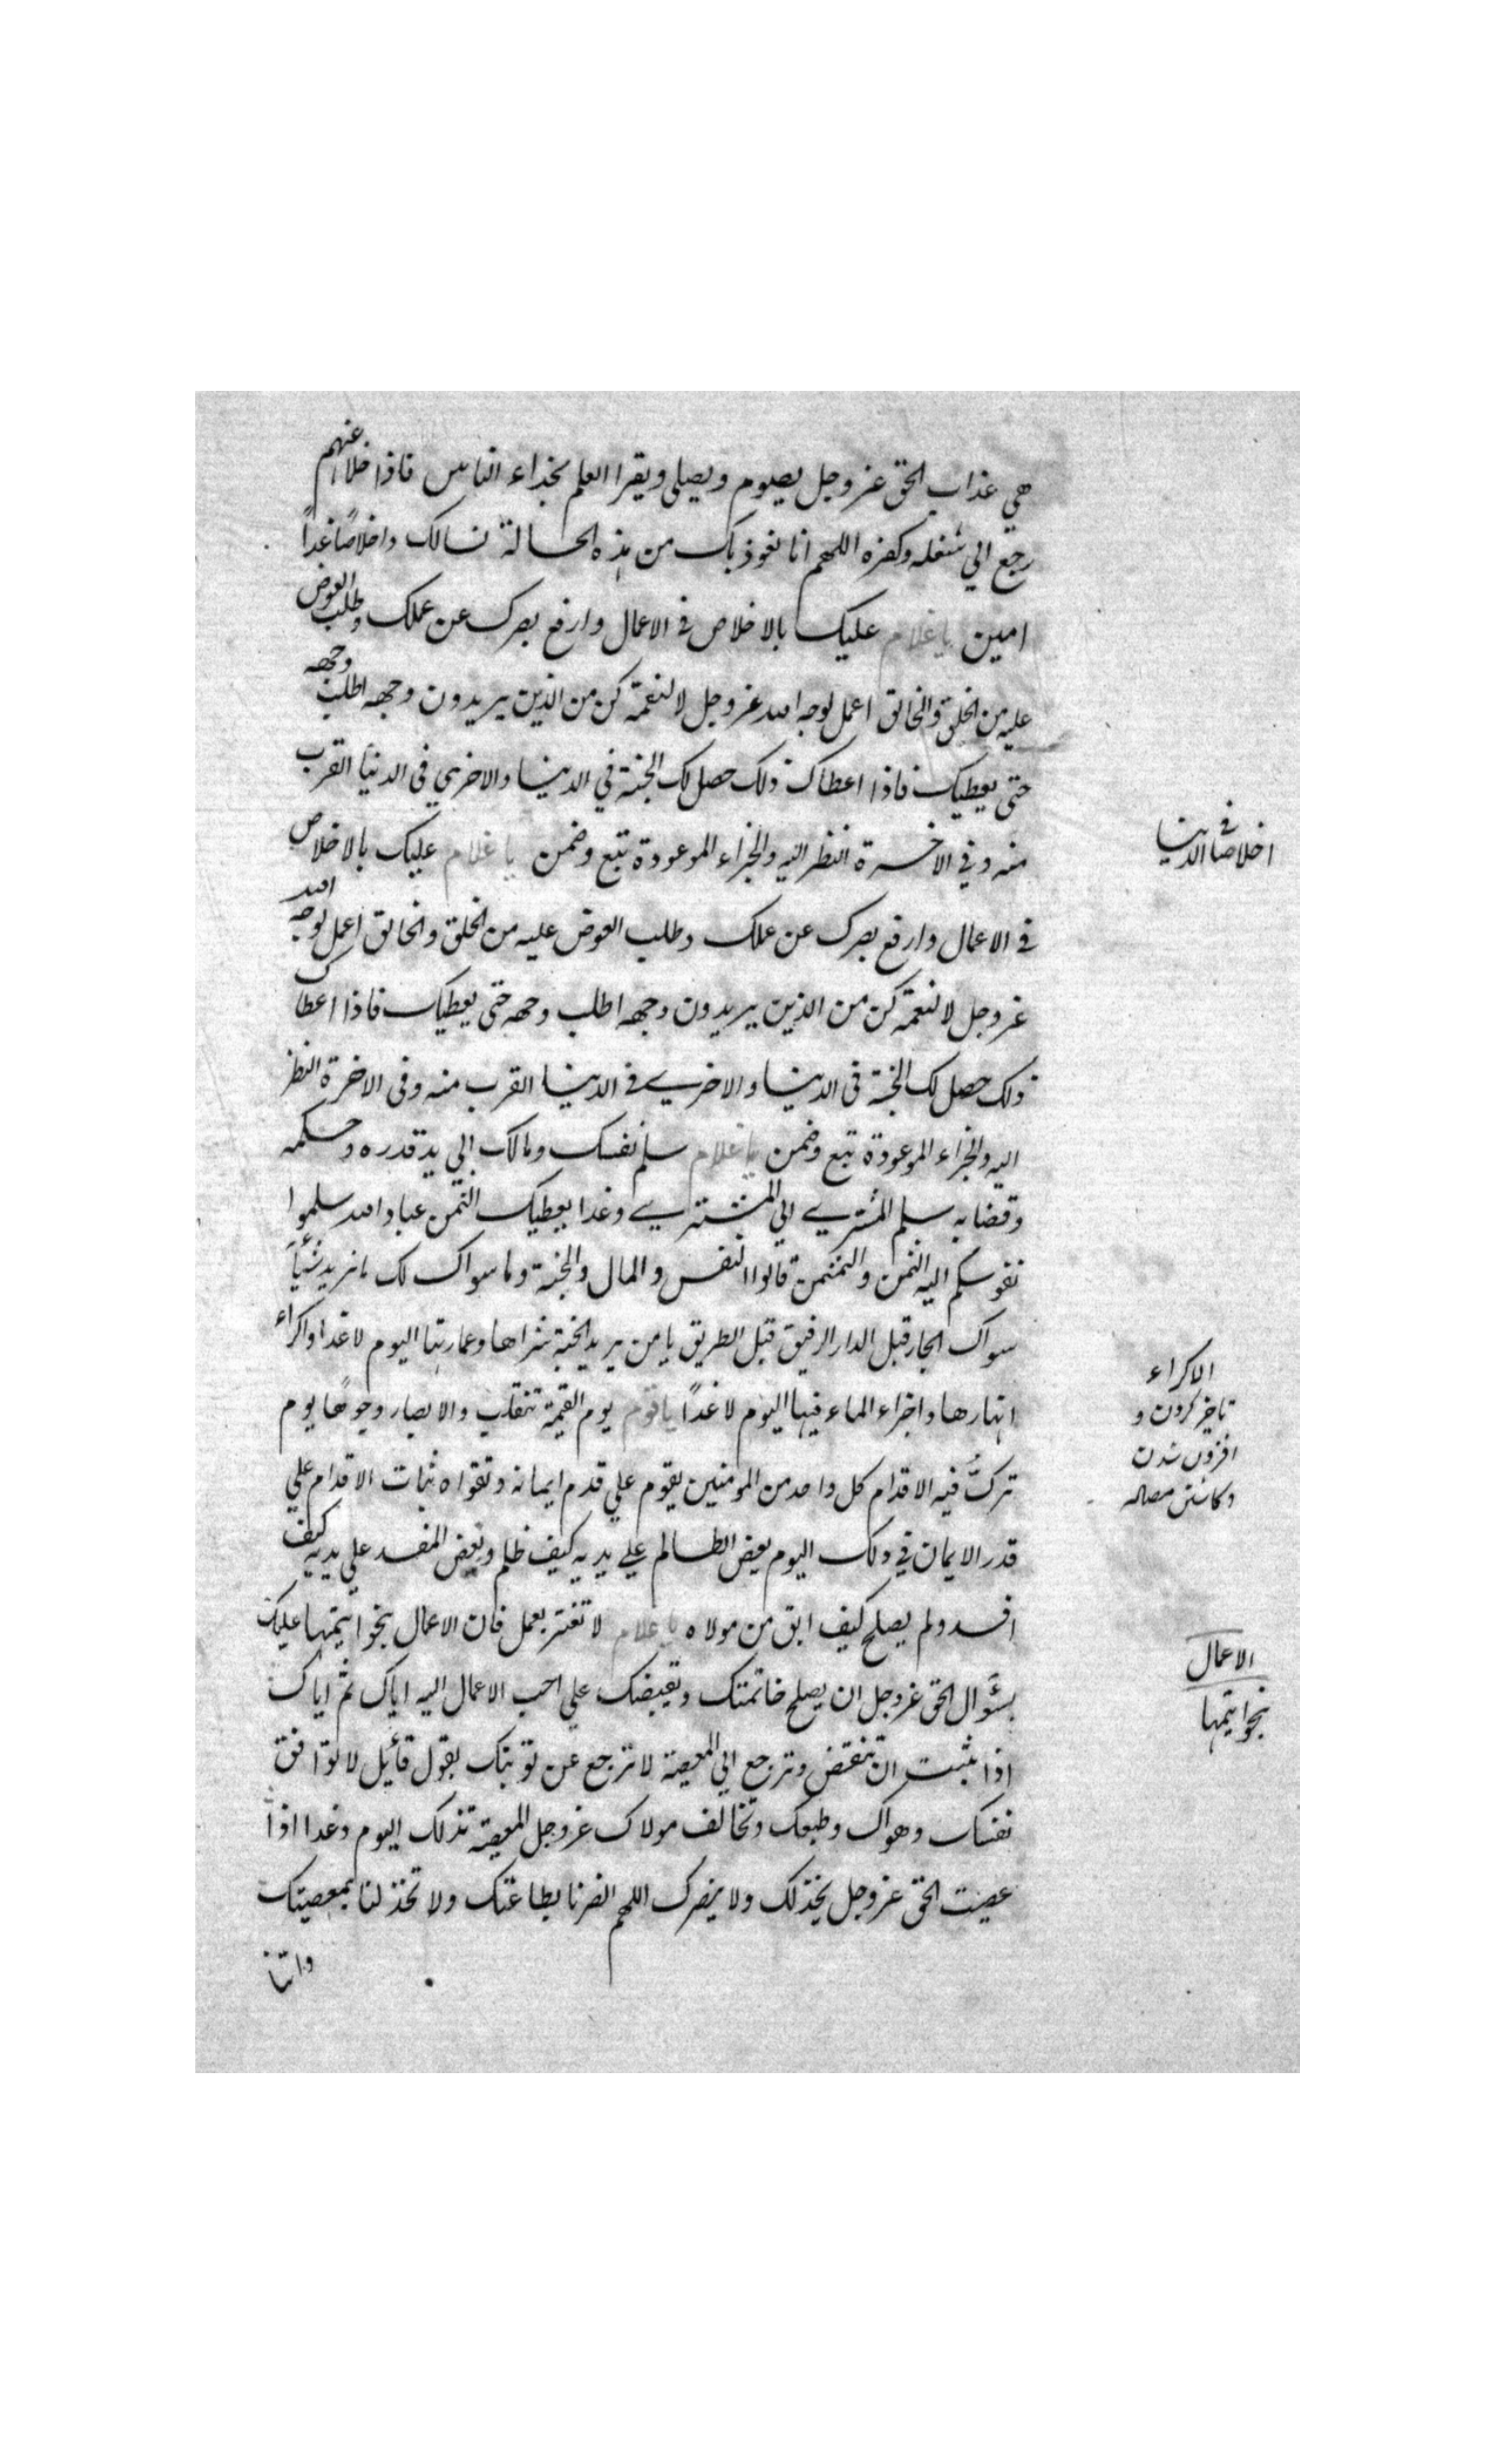 هي عذاب الحق عز وجل يصوم ويصلي ويقرا العلم بحذاء الناس فاذا خلا عنهم
رجع الي شغله وكفره اللهم انا نعوذ بك من هذه الحالة نسالك اخلاصا غداً
امين يا غلام عليك بالاخلاص في الاعمال وارفع بصرك عن عملك وطلب العوض
عليه من الخلق والخالق اعمل لوجه الله عز وجل لا لنعمة كن من الذين يريدون وجهه اطلب وجهه
حتى يعطيك فاذا اعطاك ذلك حصل لك الجنة في الدنيا والاخري في الدنيا القرب
منه وفي الاخرة النظر اليه والجزاء الموعودة تبع وضمن يا غلام عليك بالاخلاص
في الاعمال وارفع بصرك عن عملك وطلب العوض عليه من الخلق والخالق اعمل لوجه الله
عز وجل لا لنعمة كن من الذين يريدون وجهه اطلب وجهه حتى يعطيك فاذا اعطاك
ذلك حصل لك الجنة في الدنيا والاخرى في الدنيا القرب منه وفى الاخرة النظر
اليه والجزاء الموعودة تبع وضمن يا غلام سلم نفسك ومالك الي يد قدره وحكمه
وقضايه سلم المشتري الي المشتري وغدا يعطيك الثمن عباد الله سلموا
نفوسكم اليه الثمن والمثمن قالوا النفس والمال والجنة وما سواك لك ما نريد شيأ
سواك الجار قبل الدار الرفيق قبل الطريق يا من يريد الجنة شراها وعمارتها اليوم لا غدا واكراء
انهارها واجراء الماء فيها اليوم لا غداً يا قوم يوم القيمة تتقلب والابصار وجوها يوم
تزل فيه الاقدام كل واحد من المومنين يقوم علي قدم ايمانه وتقواه ثبات الاقدام علي
قدر الايمان في ذلك اليوم يعض الظالم علي يديه كيف ظلم ويعض المفسد علي يديه كيف
افسد ولم يصلح كيف ابق من مولاه يا غلام لا تغتر بعمل فان الاعمال بخواتيمها عليك
بسؤال الحق عز وجل ان يصلح خاتمتك ويقبضك علي احب الاعمال اليه اياك ثم اياك
اذا تبت ان تنقض وترجع الي المعصية لا ترجع عن توبتك بقول قائل لا توافق
نفسك وهواك وطبعك وتخالف مولاك عز وجل المعصية تذلك اليوم وغدا اذا
عصيت الحق عز وجل يخذلك ولا ينصرك اللهم انصرنا بطاعتك ولا تخذلنا بمعصيتك
واتنا
اخلاصا في الدنيا
الاكراء
تاخير كردن و
افزون شدن
وكاستن
الاعمال
بخواتيمها